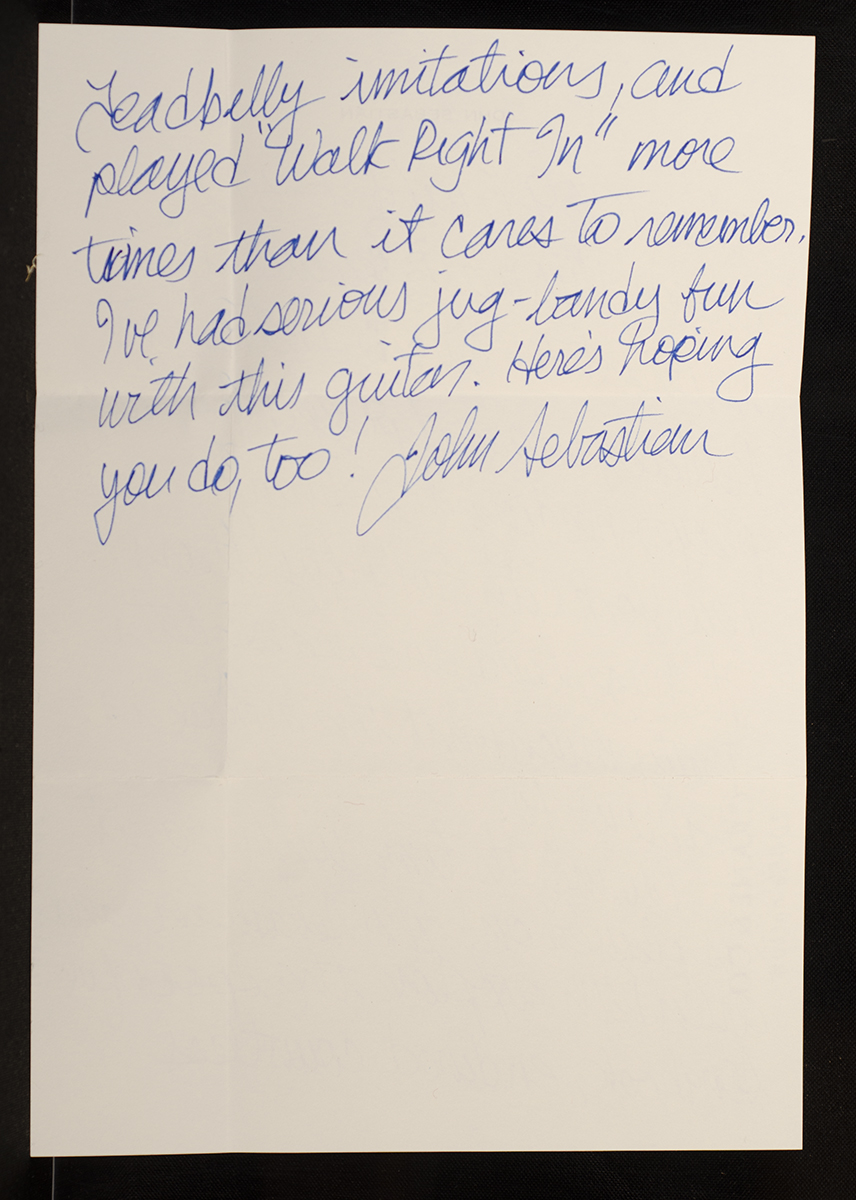 Leadbelly imitations, and
played "Walk Right In" more
times than it cares to remember.
I've had serious jug-bandy fun
with this guitar. Here's hoping
you do, too! John Sebastian